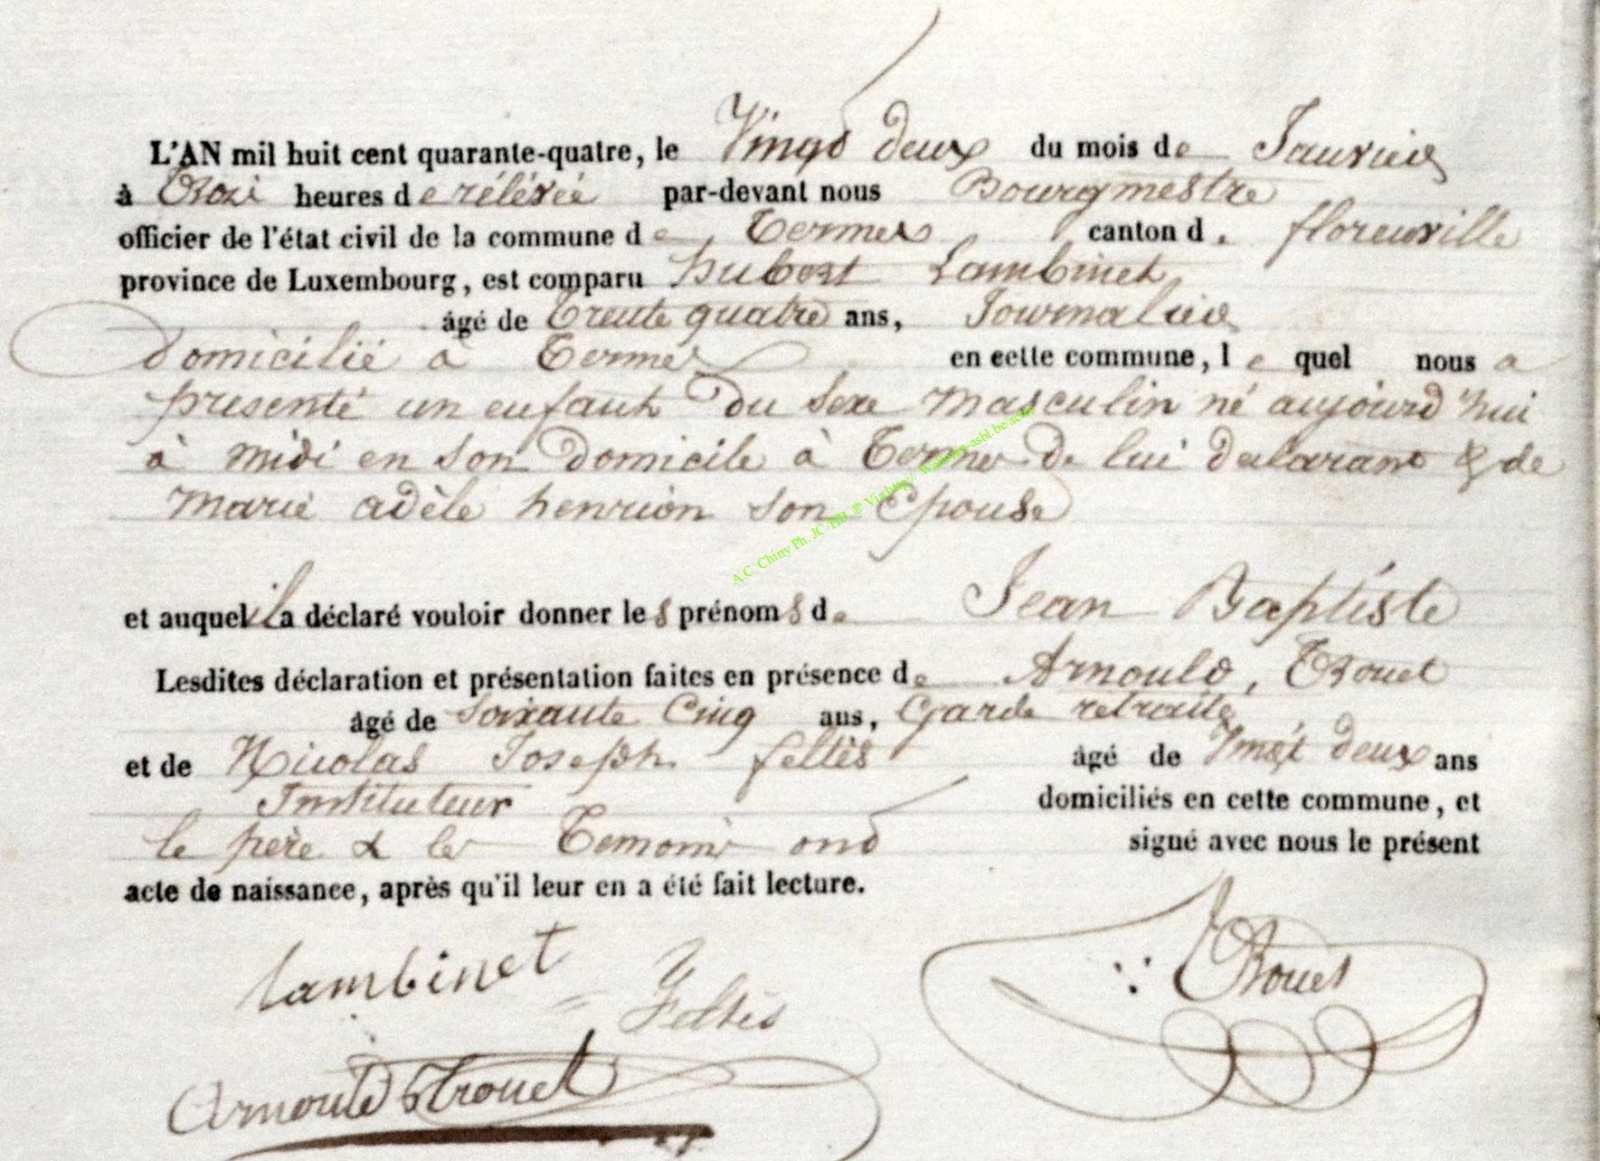 L'AN mil huit cent quarante-quatre, le Vingt deux du mois de Janvier
à Troi heures de rélévée par-devant nous Bourgmestre
officier de l'état civil de la commune de Termes canton de florenville
province de Luxembourg, est comparu hubert Lambinet
âgé de Trente quatre ans, Journalier
domicilié à Termes en cette commune, le quel nous a
présenté un enfant du sexe masculin né aujourd'hui
à midi en son domicile à Termes de lui déclarant & de
marie adèle henrion son Epouse
et auquel il a déclaré vouloir donner les prénoms de Jean Baptiste
Lesdites déclaration et présentation faites en présence de Arnould, Trouet
âgé de Soixante Cinq ans, Garde retraité
et de Nicolas Joseph feltès âgé de Vingt deux ans
Instituteur domiciliés en cette commune, et
le père & les Temoins ond signé avec nous le présent
acte de naissance, après qu'il leur en a été fait lecture.
Lambinet
Feltès
Trouet
Arnould Trouet
A C Chiny Ph. JC